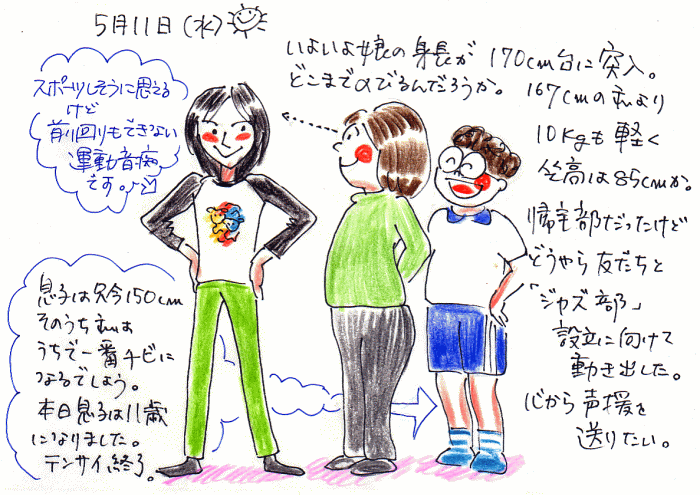 5月11日(水)
いよいよ娘の身長が 170cm台に突入。
どこまでのびるんだろうか。
167cmの私より
10kgも軽く
座高は85cmか。
帰宅部だったけど
どうやら友だちと
「ジャズ部」
設立に向けて
動き出した。
心から声援を
送りたい。
スポーツしそうに思える
けど
前回りもできない
運動音痴
です。
息子は只今150cm
そのうち私は
うちで一番チビに
なるでしょう。
本日息子は11歳
になりました。
テンサイ終了。